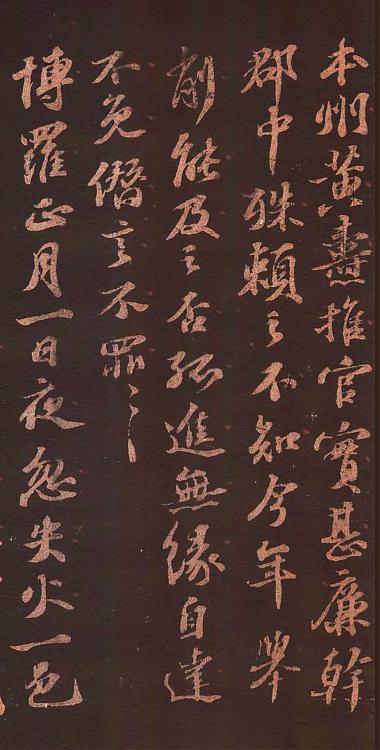 本州黄燾推官實甚廉幹
郡中殊頼之不知今年舉
削能及之否孤進無緣自達
不免僭言不罪〻
博羅正月一日夜忽失火一邑